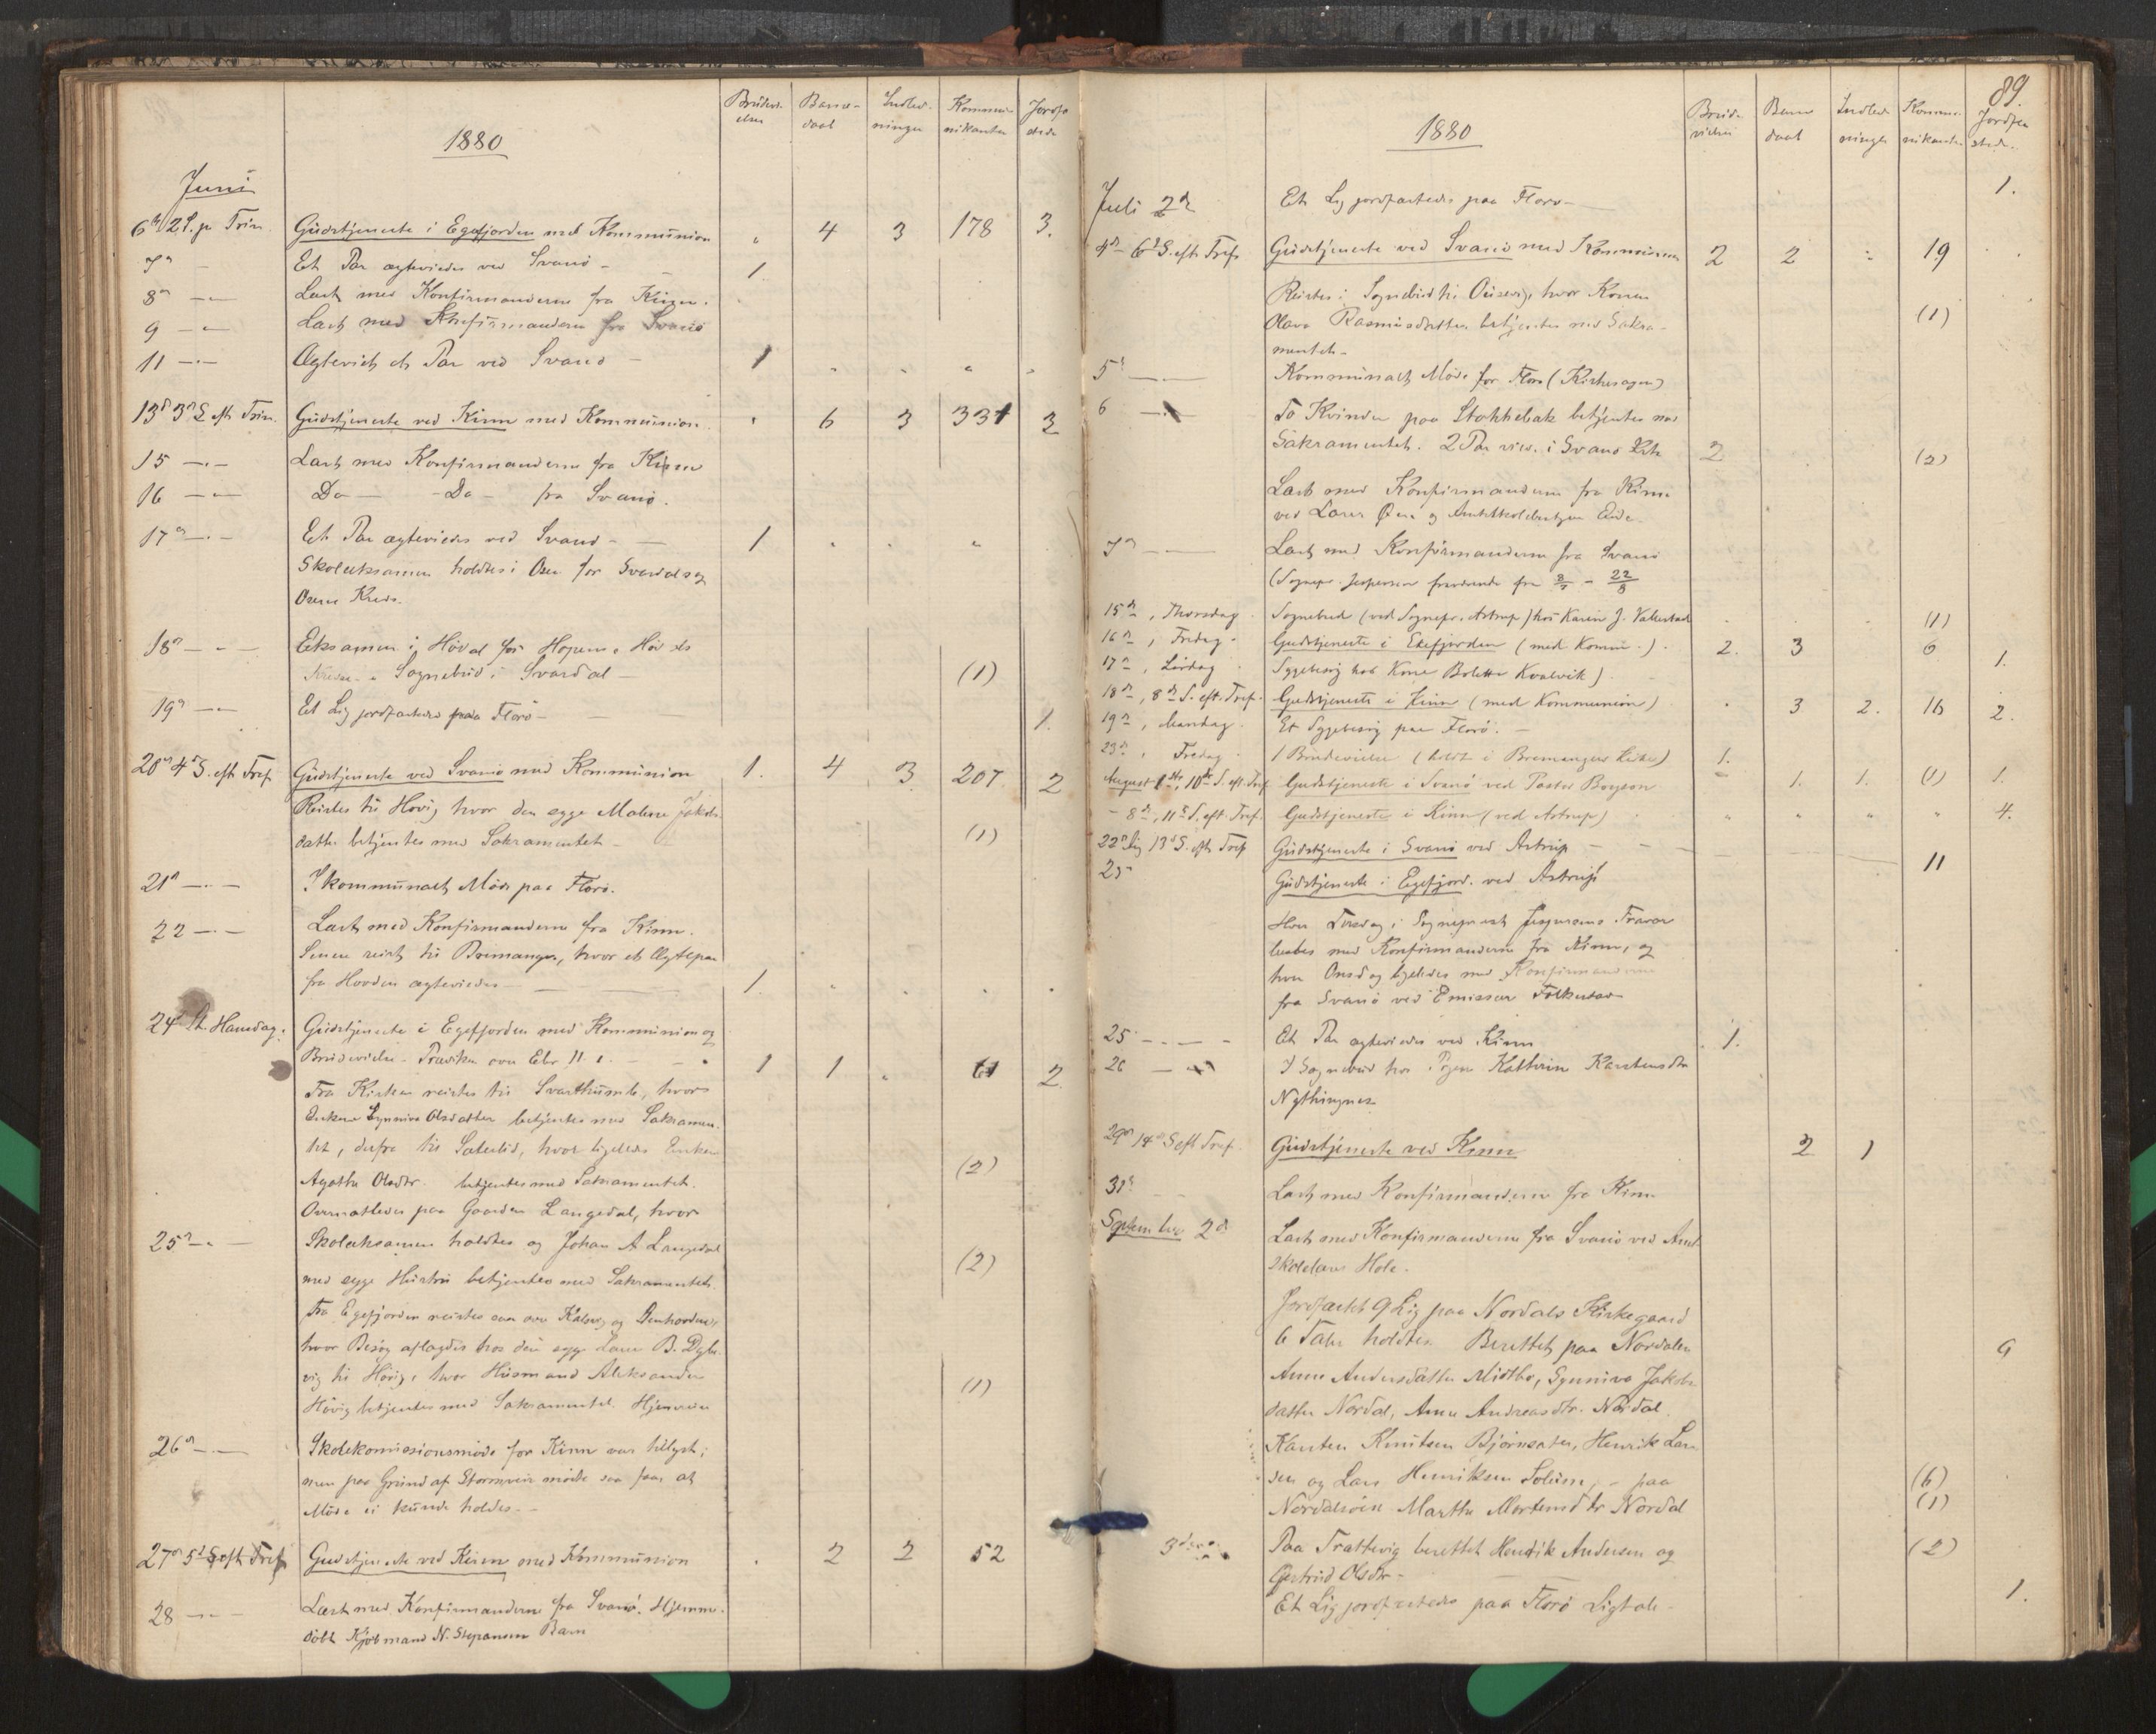 1880
Brudevi- elser
Barne- daab
Indled- ninger
Kommu- nikanter
Jordfæ- stede
Juni
6te 2 S. p. Trin. Gudstjeneste i Egefjorden med Kommunion " 4 3 178 3.
7de — Et Par ægtevieds ved Svanö — 1
8de — Læst med Konfirmanderne fra Kinn.
9 — Læst med Konfirmanderne fra Svanö
11 — Ægteviet et Par ved Svanö — 1
13d 3d S. eft. Trin. Gudstjeneste ved Kinn med Kommunion 6 3 331 3
15 — Læst med Konfirmanderne fra Kinn
16 — Do — Do — fra Svanö.
17de — Et Par ægtevieds ved Svanö — 1
Skoleeksamen holdtes i Osen for Svardal og
Osens Kreds.
18de — Eksamen i Hövdal for Hopen. Höidals
Kreds. Sognebud i Svardal — (1)
19de — Et Lig jordfæstedes paa Florö — 1.
20de 4d S. eft. Tref. Gudstjeneste ved Svanö med Kommunion 1. 4 3 207 2
Reistes til Hovig hvor den syge Malene Jakobs-
datter betjentes med Sakramentet — (1)
21de — I kommunalt Möde paa Florö.
22 — Læst med Konfirmanderne fra Kinn.
Senere reist til Bremanger, hvor et Ægtepar
fra Hovden ægtevieds — 1.
24de St. Hansdag. Gudstjeneste i Egefjorden med Kommunion og
Brudevielse — Prædiken over Ebr. 11. 1. — 1 1 " 61 2
Fra Kirken reistes til Svarthumle, hvor
Enken Synnive Olsdatter betjentes med Sakramen-
tet, derfra til Sæterlid, hvor ligeledes Enken
Agathe Olsdtr. betjentes med Sakramentet. (2)
Overnattedes paa Gaarden Langedal, hvor
25de — Skoleeksamen holdtes og Johan A Langedal
med syge Hustru betjentes med Sakramentet. (2)
Fra Egefjorden reistes saa over Kalsvig og
hvor Besög aflagdes hos den syge B.
vig til Hövig, hvor Husmand Aleksander
Hövig betjentes med Sakramentet. Hjemreise (1)
26de — Skolekomissionsmöde for Kinn var tillyst;
men paa Grund af Stormveir mödte saa faa, at
Möde ei kunde holdes —
27de 5d S. eft. Tref. Gudstjeneste ved Kinn med Kommunion . 2 2 52
28 — Læst med Konfirmanderne fra Svanö. Hjemme-
döbt Kjöbmand N. Stepansen Barn
89.
1880
Brude- vielser
Barne daab
Indled- ninger
Kommu- nikanter
Jordfæ- stede
Juli 2de Et Lig jordfæstedes paa Florö — 1.
4de — 6te S. eft. Tref. Gudstjeneste ved Svanö med Kommunion 2 2 " 19
Reistes i Sognebud til hvor Konen
Olava Rasmusdatter betjentes med Sakra-
mentet — (1)
5te — Kommunalt Möde for Florö (Kirkesagen)
6 — To Kvinder paa Stokkebak betjentes med
Sakramentet. 2 Par viet i Svanö Krk. 2 (2)
Læst med Konfirmanderne fra Kinn
ved Lærer Öen og Amtskolebestyrer Eide.
7de — Læst med Konfirmanderne fra Svanö
(Sognepr. Jespersen fraværende fra 8/7 — 22/8
15de, Thorsdag Sognebud (ved Sognepr. Astrup) hos Karin J. Vallestad (1)
16de, Fredag. Gudstjeneste i Ekefjorden (med Komm.) 2. 3 6 1.
17de, Lördag Sygebesög hos Kone Bolette Kvalvik)
18de, 8de S. eft. Tref. Gudstjeneste i Kinn (med Kommunion) . 3 2. 16 2.
19de, Mandag. Et Sygebesög paa Florö. —
23de, Fredag. 1 Brudevielse (holdt i Bremangers Kirke) 1.
August 1ste, 10de S. eft. Tref. Gudstjeneste i Svanö ved Pastor Boyson 1. 1. (1) 1.
— 8de, 11te S. eft. Tref. Gudstjeneste i Kinn (ved Astrup) " " " " 4.
22de 13d S. eft. Tref. Gudstjeneste i Svanö ved Astrup — 11
25 Gudstjeneste i Egefjord. ved Astrup
Hver Tirsdag i Sogneprest Jespersens Fravær
læstes med Konfirmanderne fra Kinn, og
hver Onsdag ligeledes med Konfirmanderne
fra Svanö ved Emissær
25 — Et Par ægtevieds ved Kinn 1.
26 — I Sognebud hos Pigen Kathrine Karstensdtr
29de 14de S. eft Tref. Gudstjeneste ved Kinn 2 1
31te Læst med Konfirmanderne fra Kinn
September 2de Læst med Konfirmanderne fra Svanö ved Amt-
skolelærer Hole.
Jordfæstet 9 Lig paa Nordals Kirkegaard
6 Taler holdtes. Berettet paa Nordalen 9
Anne Andersdatter Midtbö, Synniva Jakobs-
datter Nordal, Anne Andreasdtr. Nordal.
Karsten Knutsen Björnsæter, Henrik Lar-
sen og Lars Henriksen Solheim, — paa (6)
Nordalsöen Marthe Mortensdtr Nordal (1)
3die Paa Trættevig berettet Hendrik Andersen og (2)
Gertrud Olsdtr —
Et Lig jordfæstedes paa Florö Ligtale — 1.